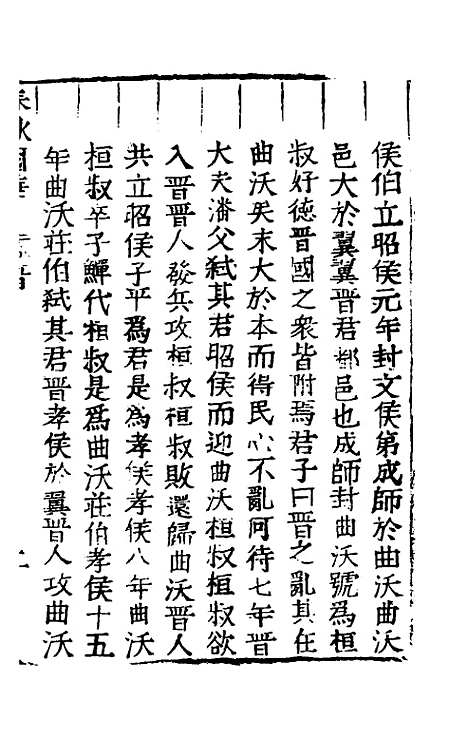 侯伯立昭侯元年封文侯第成師於曲沃曲沃
邑大於翼翼晉君都邑也成師封曲沃號為桓
叔好德晉國之衆皆附焉君子曰晉之亂其在
曲沃矣末大於本而得民心不亂何待七年晉
大夫潘父弑其君昭侯而迎曲沃桓叔桓叔欲
入晉晉人發兵攻桓叔桓叔敗還歸曲沃晉人
共立昭侯子平爲君是為孝侯孝侯八年曲沃
桓叔卒子鱓代桓叔是爲曲沃莊伯孝侯十五
年曲沃莊伯弑其君晉孝侯於翼晉人攻曲沃